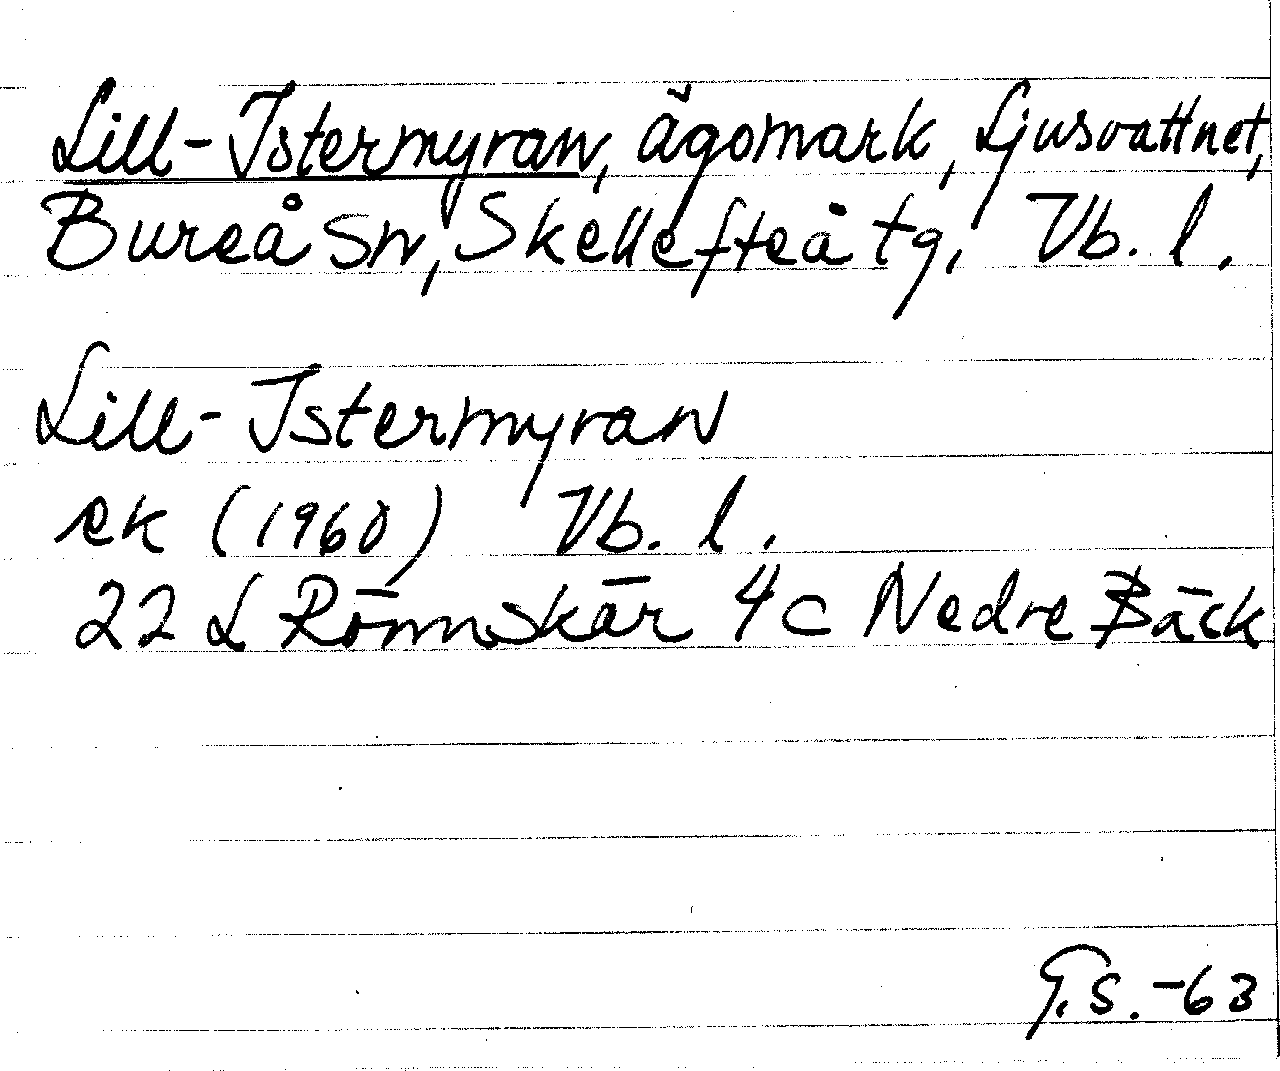 Lill-Istermyran, ägomark, Ljusvattnet,
Bureå sn, Skellefteå tg, Vb. l.
Lill-Istermyran
ek (1960) Vb. l.
22 L Rönnskär 4c Nedre Bäck
G.S.-63